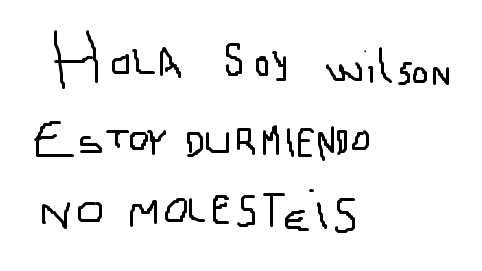 HOLA Soy wilson
ESTOY DURMIENDO
NO MOLESTEiS